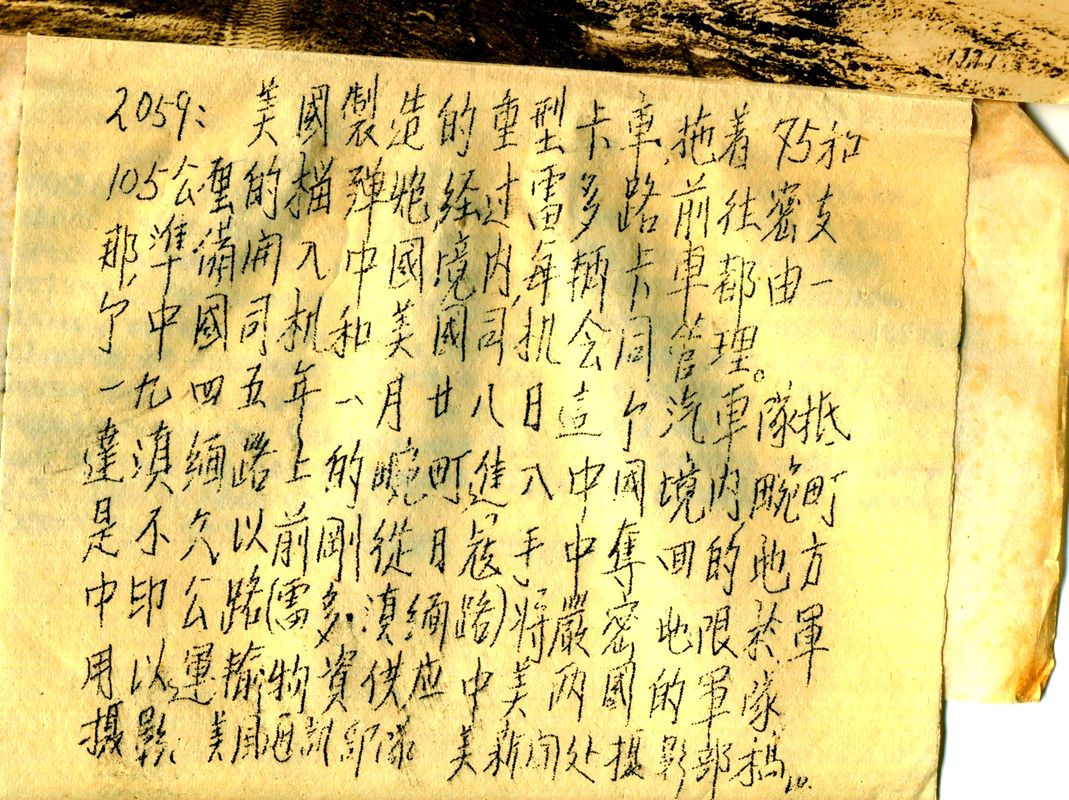 2059: 美國製造的重型卡車,拖着75和
105公厘的榴彈炮经过雷多路前往密支
那,準備開入中國境内,每輛卡車都由一
个中國司机和美國司机会同管理。
一九四五年一月廿八日這个汽車隊抵
達滇緬路上的畹町進入中國境内畹町
是不久以前剛從日寇手中奪回的地方
中印公路(雷多.滇緬路)將嚴密地限於軍
用以運輸物資供应中美两國的軍隊
摄影: 美國通訊部隊 美新闻处摄影部稿